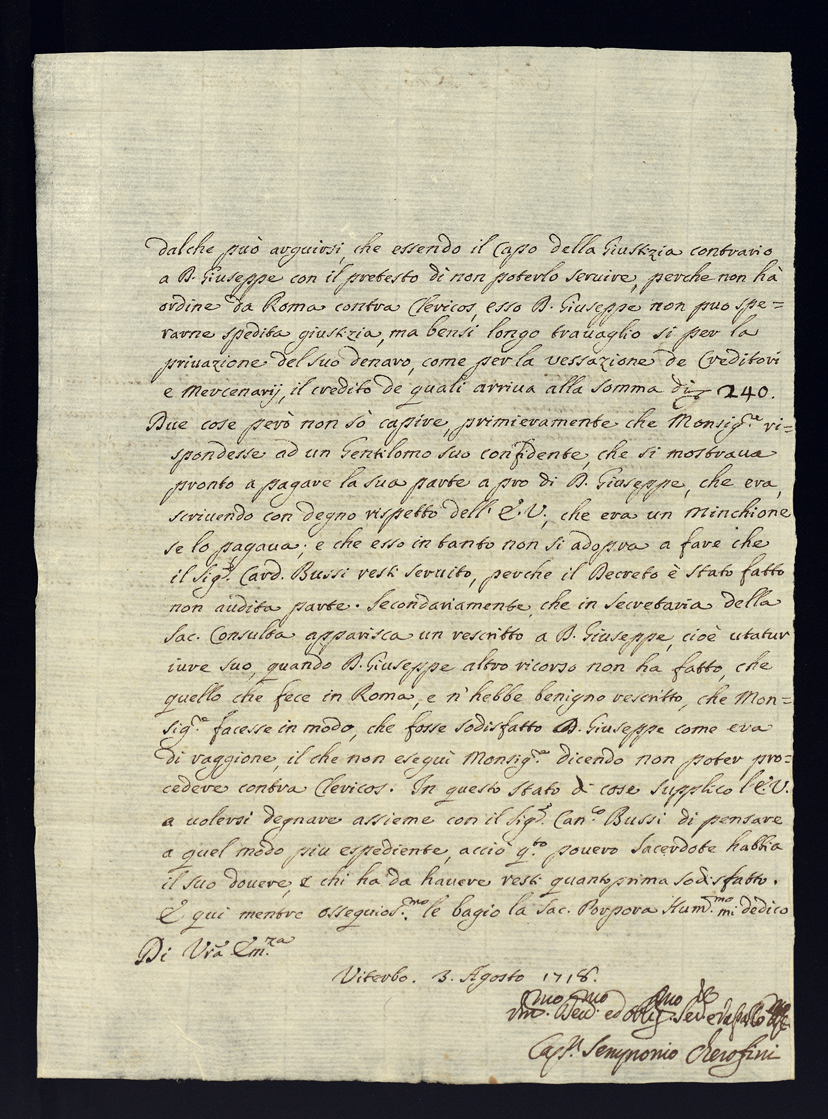 dalche può arguirsi, che essendo il Capo della Giustizia contrario
a D. Giuseppe con il pretesto di non poterlo seruire, perche non hà
ordine da Roma contra Clericos, esso D. Giuseppe non puo spe=
rarne spedita giustizia, ma bensi longo trauaglio si per la
priuazione del suo denaro, come per la vessazione de Creditori
e Mercenarij, il credito de quali arriua alla somma di 240.
Due cose però non sò capire, primieramente che Monsig.re ri=
spondesse ad un Gentilomo suo confidente, che si mostraua
pronto a pagare la sua parte a pro di D. Giuseppe, che era,
scriuendo con degno rispetto dell' E.V., che era un Minchione
se lo pagaua; e che esso in tanto non si adopra a fare che
il Sig.r Card. Bussi resti seruito, perche il Decreto è stato fatto
non audita parte. Secondariamente, che in Secretaria della
Sac. Consulta apparisca un rescritto a D. Giuseppe, cioè utatur
iure suo, quando D. Giuseppe altro ricorso non ha fatto, che
quello che fece in Roma, e n'hebbe benigno rescritto, che Mon=
sig.re facesse in modo, che fosse sodisfatto D. Giuseppe come era
di raggione, il che non esegui Monsig.re dicendo non poter pro=
cedere contra Clericos. In questo stato di cose supplico l'E.V.
a uolersi degnare assieme con il Sig.r Can.co Bussi di pensare
a quel modo piu espediente, acciò q.sto pouero Sacerdote habbia
il suo douere, e chi ha da hauere resti quantoprima sodisfatto.
E qui mentre ossequios.mo le bagio la Sac. Porpora Hum.mo mi dedico
Di Vrã Em.za
Viterbo. 3. Agosto 1718.
ed oblig.mo
Cap.n Sempronio Cherofini